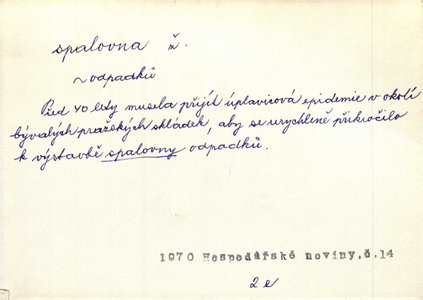 spalovna ž.
~ odpadků
Před 40 lety musela přijít úplavicová epidemie v okolí
bývalých pražských skládek, aby se urychleně přikročilo
k výstavbě spalovny odpadků.
1970 Hospodářské noviny, č. 14
2e